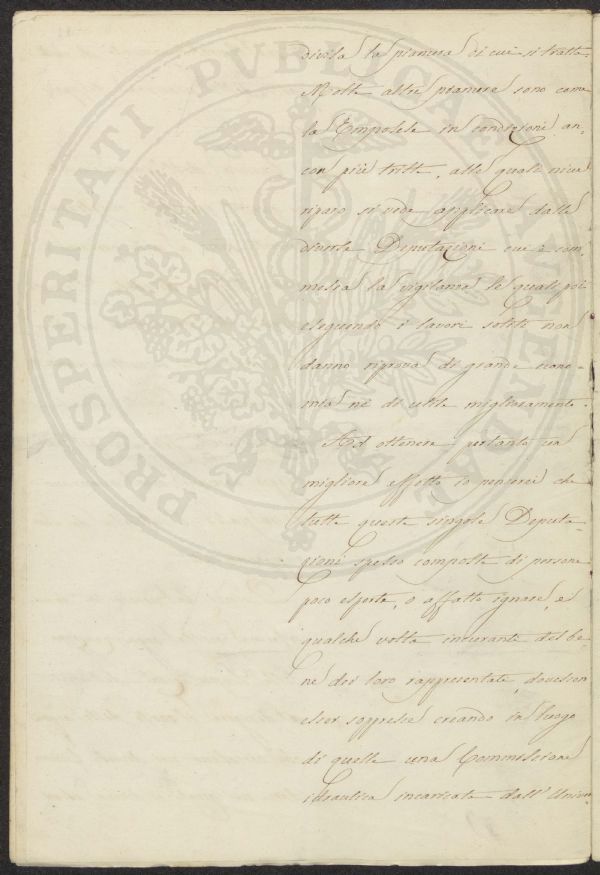 PROSPERITATI PVBLICAE AVGENDAE
la pianura di cui si tratta.
Molte altre pianure sono come
la Empolese in condizioni an-
cor più triste, alle quali niun
riparo si vede applicare dalle
diverse Deputazioni cui è com-
messa la vigilanza le quali poi
eseguendo i lavori soliti non
danno riprova di grande econo-
mia nè di utile miglioramento.
Ad ottenere pertanto un
migliore effetto io penserei che
tutte queste singole Deputa-
zioni spesso composte di persone
poco esperte, o affatto ignare, e
qualche volta incuranti del be-
ne dei loro rappresentati, dovesson
esser soppresse creando in luogo
di quelle una Commissione
idraulica incaricata dall'